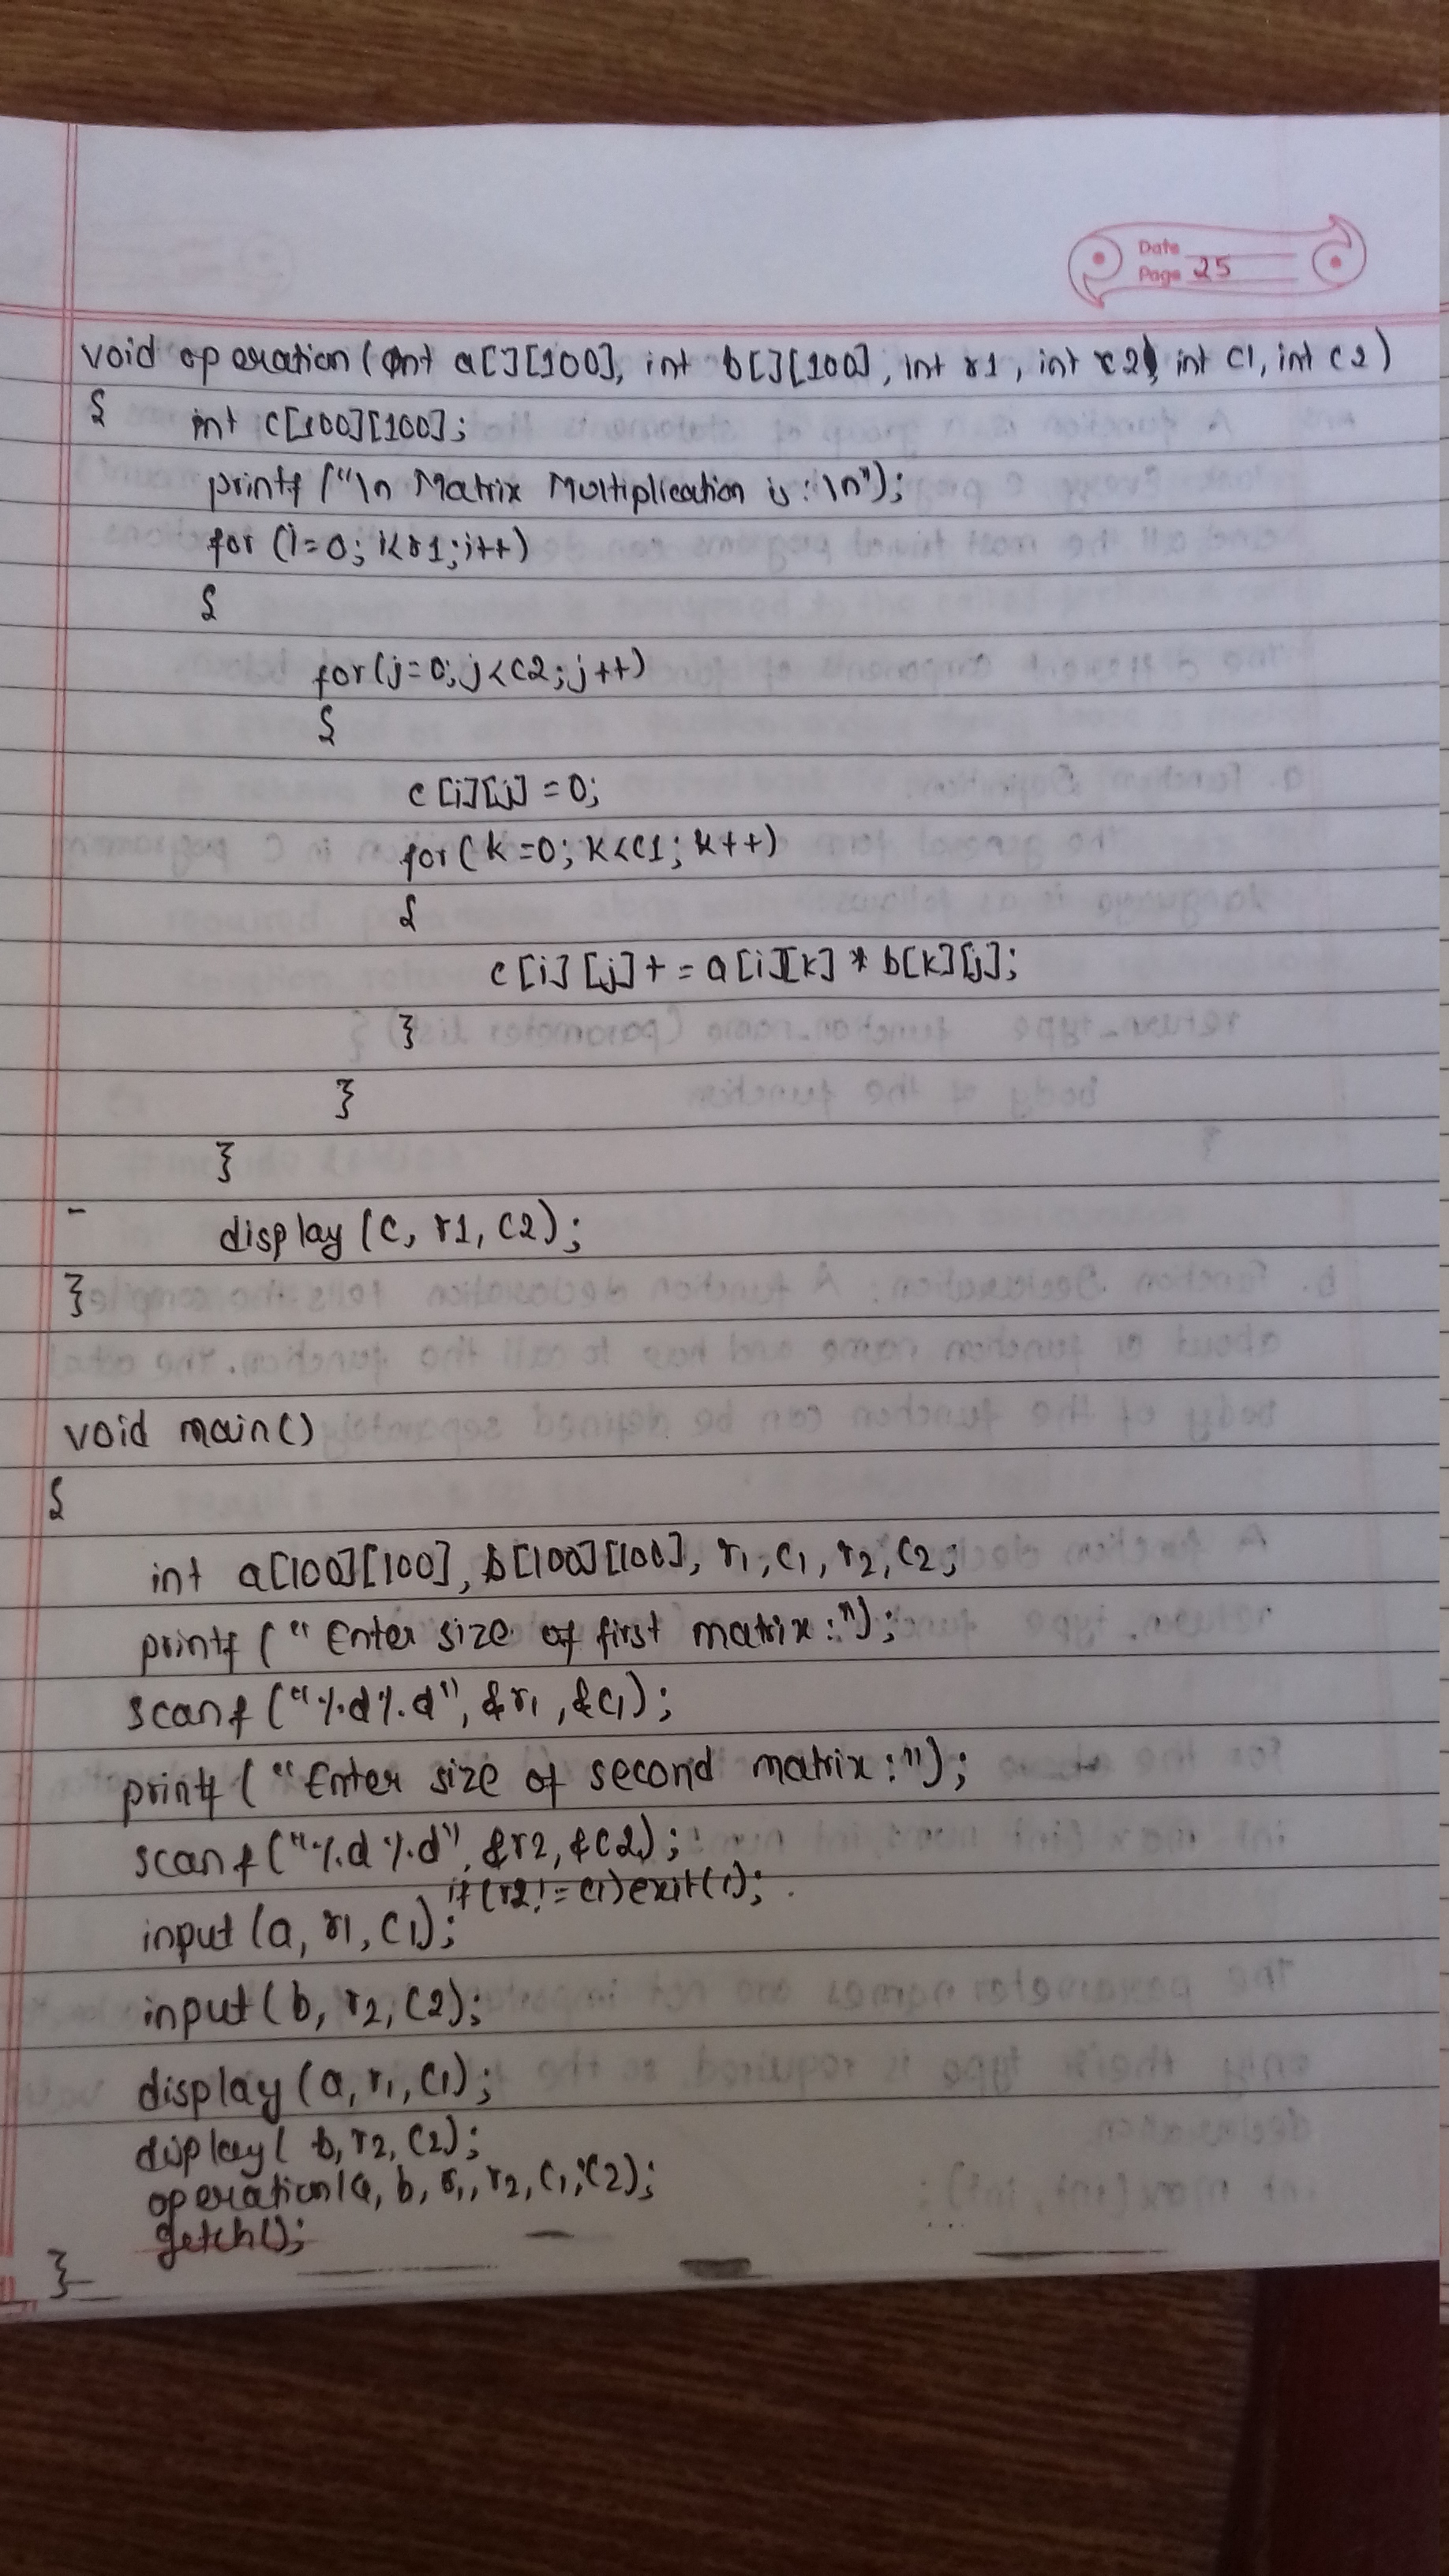 Date
Page 25
void operation (int a[][100], int b[][100], int r1, int r2, int c1, int c2)
{ int c[100][100];
printf ("\n Matrix Multiplication is : \n");
for (i=0; i<r1; i++)
{
for (j=0; j<c2; j++)
{
c[i][j] = 0;
for (k=0; k<c1; k++)
{
c[i][j] + = a[i][k] * b[k][j];
}
}
}
display (c, r1, c2);
}
void main()
{
int a[100][100], b[100][100], r1, c1, r2, c2;
printf (" Enter size of first matrix :");
scanf ("%d%d", &r1, &c1);
printf ("Enter size of second matrix :");
scanf ("%d %d", &r2, &c2);
if (r2! = c1) exit(1);
input (a, r1, c1);
input (b, r2, c2);
display (a, r1, c1);
display ( b, r2, c2);
operation(a, b, r1, r2, c1, c2);
getch();
}